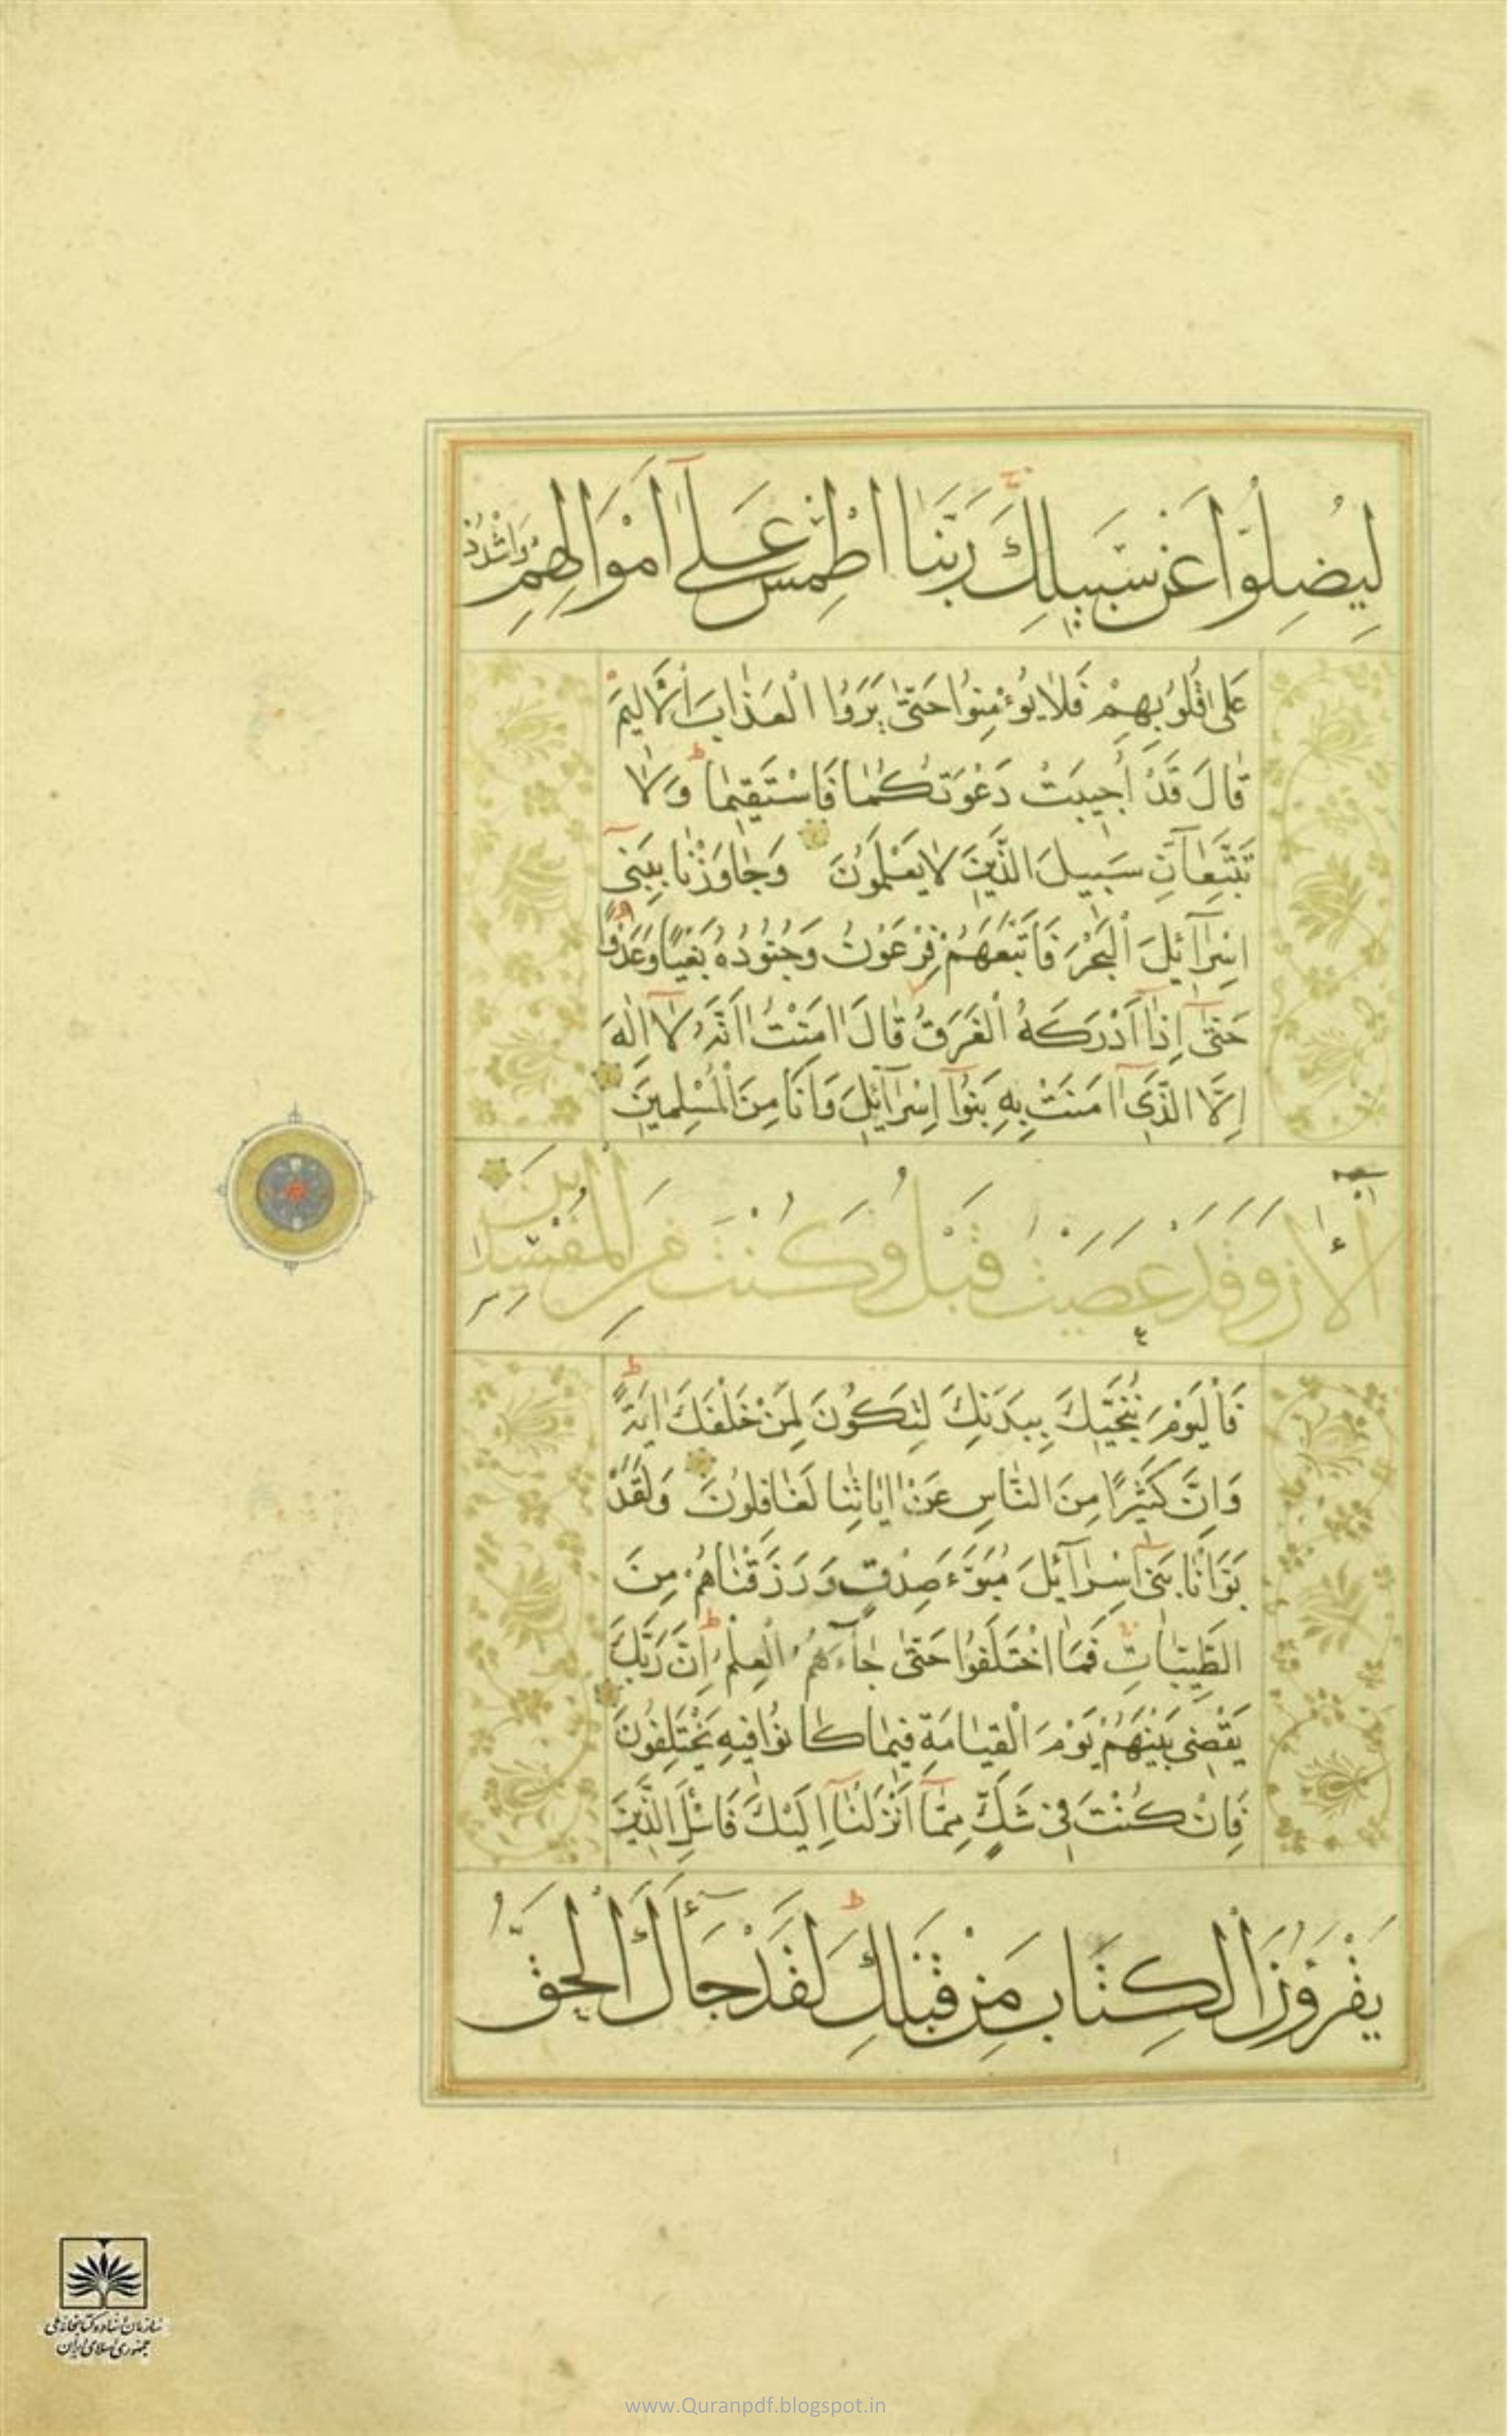 لِيُضِلُّوا عَنْ سَبِيلِكَ رَبَّنَا اطْمِسْ عَلٰٓى اَمْوَالِهِمْ وَاشْدُدْ
عَلٰى قُلُوبِهِمْ فَلَا يُؤْمِنُوا حَتّٰى يَرَوُا الْعَذَابَ الْاَلِيمَ
قَالَ قَدْ اُجِيبَتْ دَعْوَتُكُمَا فَاسْتَقِيمَا وَلَا
تَتَّبِعَآنِّ سَبِيلَ الَّذِينَ لَا يَعْلَمُونَ وَجَاوَزْنَا بِبَنِٓى
اِسْرَآئِلَ الْبَحْرَ فَاَتْبَعَهُمْ فِرْعَوْنُ وَجُنُودُهُ بَغْيًا وَعَدْوًا
حَتّٰٓى اِذَآ اَدْرَكَهُ الْغَرَقُ قَالَ اٰمَنْتُ اَنَّهُ لَآ اِلٰهَ
اِلَّا الَّذِٓى اٰمَنَتْ بِهِ بَنُوٓا اِسْرَآئِلَ وَاَنَا مِنَ الْمُسْلِمِينَ
آلْآنَ وَقَدْ عَصَيْتَ قَبْلُ وَكُنْتَ مِنَ الْمُفْسِدِينَ
فَالْيَوْمَ نُنَجِّيكَ بِبَدَنِكَ لِتَكُونَ لِمَنْ خَلْفَكَ اٰيَةً
وَاِنَّ كَثِيرًا مِنَ النَّاسِ عَنْ اٰيَاتِنَا لَغَافِلُونَ وَلَقَدْ
بَوَّأْنَا بَنِٓى اِسْرَآئِلَ مُبَوَّءَ صِدْقٍ وَرَزَقْنَاهُمْ مِنَ
الطَّيِّبَاتِ فَمَا اخْتَلَفُوا حَتّٰى جَآءَهُمُ الْعِلْمُ اِنَّ رَبَّكَ
يَقْضِى بَيْنَهُمْ يَوْمَ الْقِيَامَةِ فِيمَا كَانُوا فِيهِ يَخْتَلِفُونَ
فَاِنْ كُنْتَ فِى شَكٍّ مِمَّآ اَنْزَلْنَآ اِلَيْكَ فَاسْئَلِ الَّذِينَ
يَقْرَؤُنَ الْكِتَابَ مِنْ قَبْلِكَ لَقَدْ جَآئَكَ الْحَقُّ
سازمان اسناد و کتابخانه ملی
جمهوری اسلامی ایران
www.Quranpdf.blogspot.in